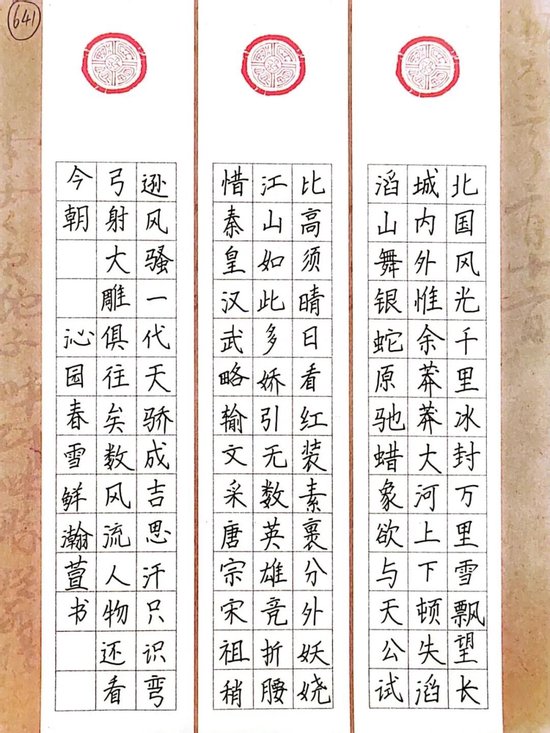 641
北国风光千里冰封万里雪飘望长
城内外惟余莽莽大河上下顿失滔
滔山舞银蛇原驰蜡象欲与天公试
比高须晴日看红装素裹分外妖娆
江山如此多娇引无数英雄竞折腰
惜秦皇汉武略输文采唐宗宋祖稍
逊风骚一代天骄成吉思汗只识弯
弓射大雕俱往矣数风流人物还看
今朝 沁园春雪鲜瀚萱书